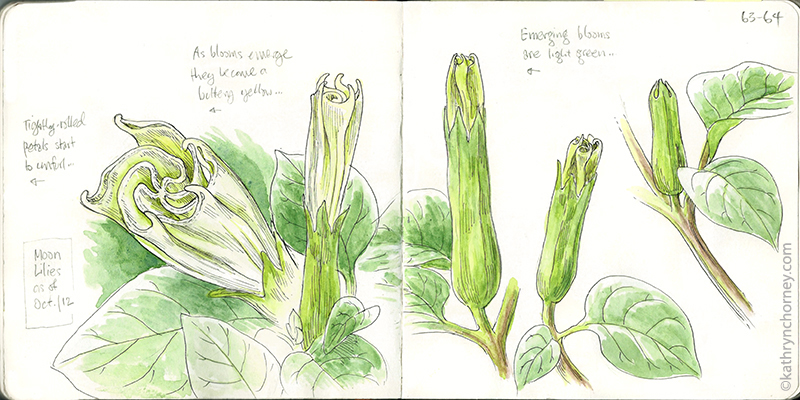 63-64
As blooms emerge
they become a
buttery yellow...
Emerging blooms
are light green...
Tightly-rolled
petals start
to unfurl...
Moon
Lilies
as of
Oct./12
©kathrynchorney.com